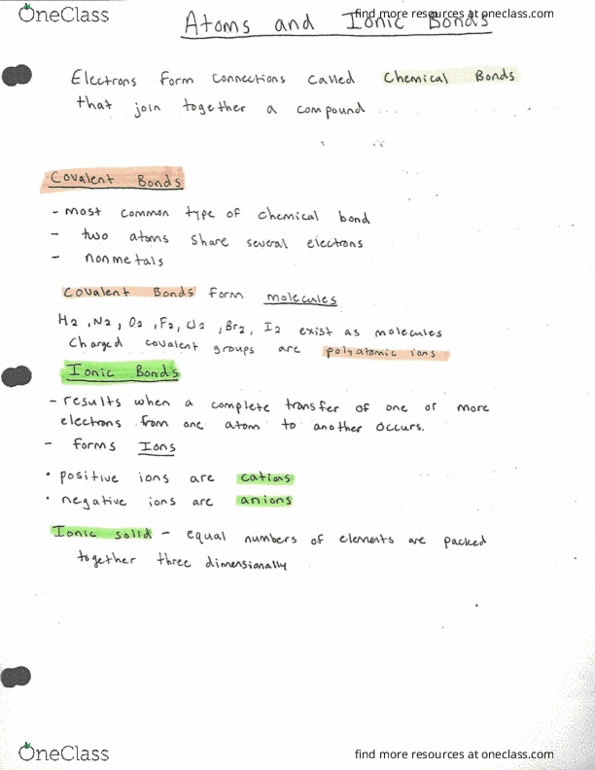 OneClass
find more resources at oneclass.com
Atoms and Ionic Bonds
Electrons form connections called Chemical Bonds
that join together a compound
Covalent Bonds
- most common type of chemical bond
- two atoms share several electrons
- nonmetals
Covalent Bonds form molecules
H2, N2, O2, F2, Cl2, Br2, I2 exist as molecules
Charged covalent groups are polyatomic ions
Ionic Bonds
- results when a complete transfer of one or more
electrons from one atom to another occurs.
- forms Ions
• positive ions are cations
• negative ions are anions
Ionic solid - equal numbers of elements are packed
together three dimensionally
OneClass
find more resources at oneclass.com